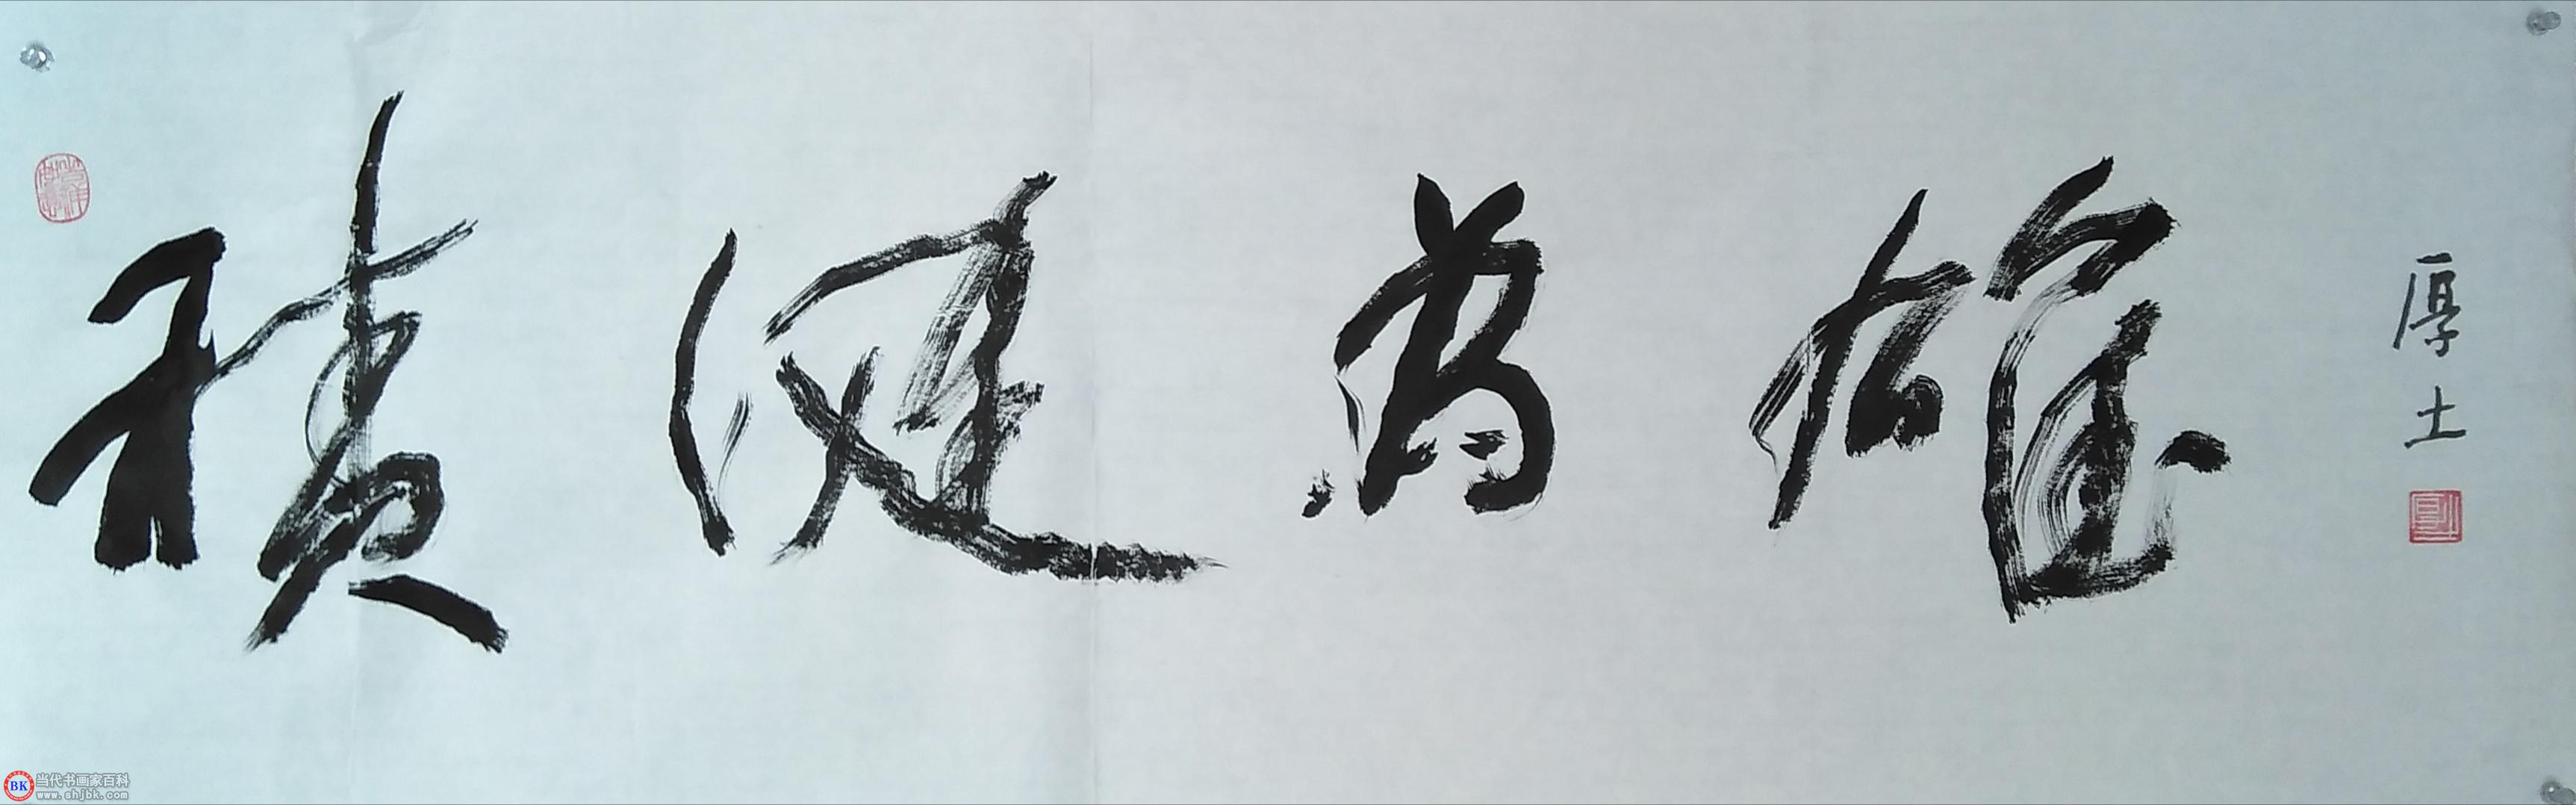 積健為雄
厚土
BK 当代书画家百科
www.shjbk.com